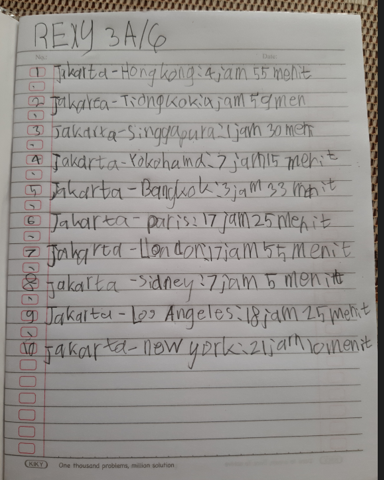 REXY 3A/6
No. Date.
1 Jakarta-Hongkong:4jam 55 menit
2 Jakarea-Tiongkok:a jam 59men
3 Jakarta-Singgapura:1jam 30men
4 Jakarta-Yokohama:7 jam15 menit
5 Jakarta-Bangkok:3jam 33 menit
6 Jakarta-paris:17 jam 25 menit
7 Jakarta-London:17jam 55 menit
8 jakarta-sidney:7jam 5 menit
9 Jakarta-Los Angeles:18jam 25 menit
10 jakarta-new york:21jam 10menit
One thousand problems, million solution